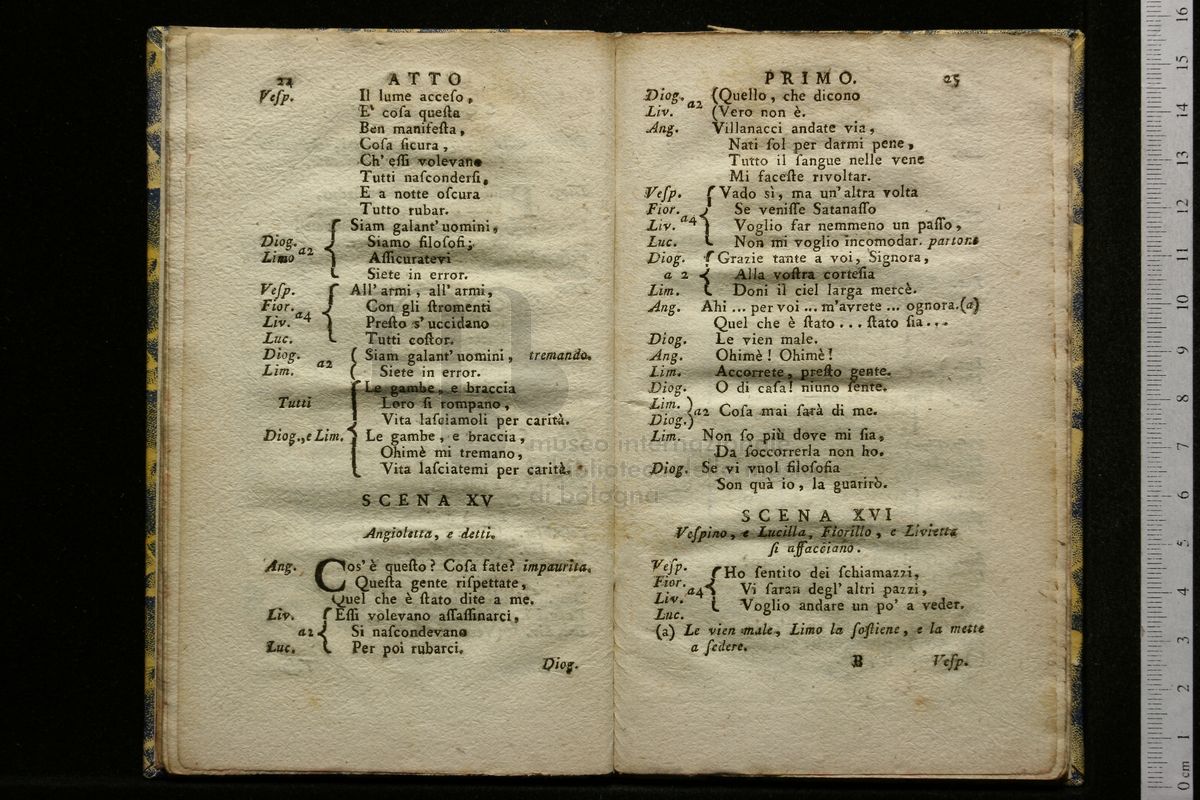 24 ATTO
Veſp. Il lume acceſo,
E' coſa queſta
Ben manifeſta,
Coſa ſicura,
Ch' eſſi volevano
Tutti naſconderſi,
E a notte oſcura
Tutto rubar.
Siam galant' uomini,
Diog. Siamo filoſofi;
Limo a2 Aſſicuratevi
Siete in error.
Veſp. All' armi, all' armi,
Fior. Con gli ſtromenti
Liv. a4 Preſto s' uccidano
Luc. Tutti coſtor.
Diog. a2 Siam galant' uomini, tremando.
Lim. Siete in error.
Le gambe, e braccia
Tutti Loro ſi rompano,
Vita laſciamoli per carità.
Diog., e Lim. Le gambe, e braccia,
Ohimè mi tremano,
Vita laſciatemi per carità.
SCENA XV
Angioletta, e detti.
Ang. Cos' è queſto? Coſa fate? impaurita.
Queſta gente riſpettate,
Quel che è ſtato dite a me.
Liv. Eſſi volevano aſſaſſinarci,
a2 Si naſcondevano
Luc. Per poi rubarci.
Diog.
PRIMO. 25
Diog. a2 (Quello, che dicono
Liv. (Vero non è.
Ang. Villanacci andate via,
Nati ſol per darmi pene,
Tutto il ſangue nelle vene
Mi faceſte rivoltar.
Veſp. Vado sì, ma un' altra volta
Fior. Se veniſſe Satanaſſo
Liv. a4 Voglio far nemmeno un paſſo,
Luc. Non mi voglio incomodar. partono
Diog. Grazie tante a voi, Signora,
a 2 Alla voſtra corteſia
Lim. Doni il ciel larga mercè.
Ang. Ahi ... per voi ... m'avrete ... ognora.(a)
Quel che è ſtato ... ſtato ſia...
Diog. Le vien male.
Ang. Ohimè! Ohimè!
Lim. Accorrete, preſto gente.
Diog. O di caſa! niuno ſente.
Lim. )
Diog.) a2 Coſa mai ſarà di me.
Lim. Non ſo più dove mi ſia,
Da ſoccorrerla non ho.
Diog. Se vi vuol filoſofia
Son quà io, la guarirò.
SCENA XVI
Veſpino, e Lucilla, Fiorillo, e Livietta
ſi affacciano.
Veſp. Ho ſentito dei ſchiamazzi,
Fior. a4 Vi ſaran degl' altri pazzi,
Liv. Voglio andare un po' a veder.
Luc.
(a) Le vien male, Limo la ſoſtiene, e la mette
a ſedere.
B Veſp.
museo internazionale
biblioteca della musica
di bologna
0 cm 1 2 3 4 5 6 7 8 9 10 11 12 13 14 15 16